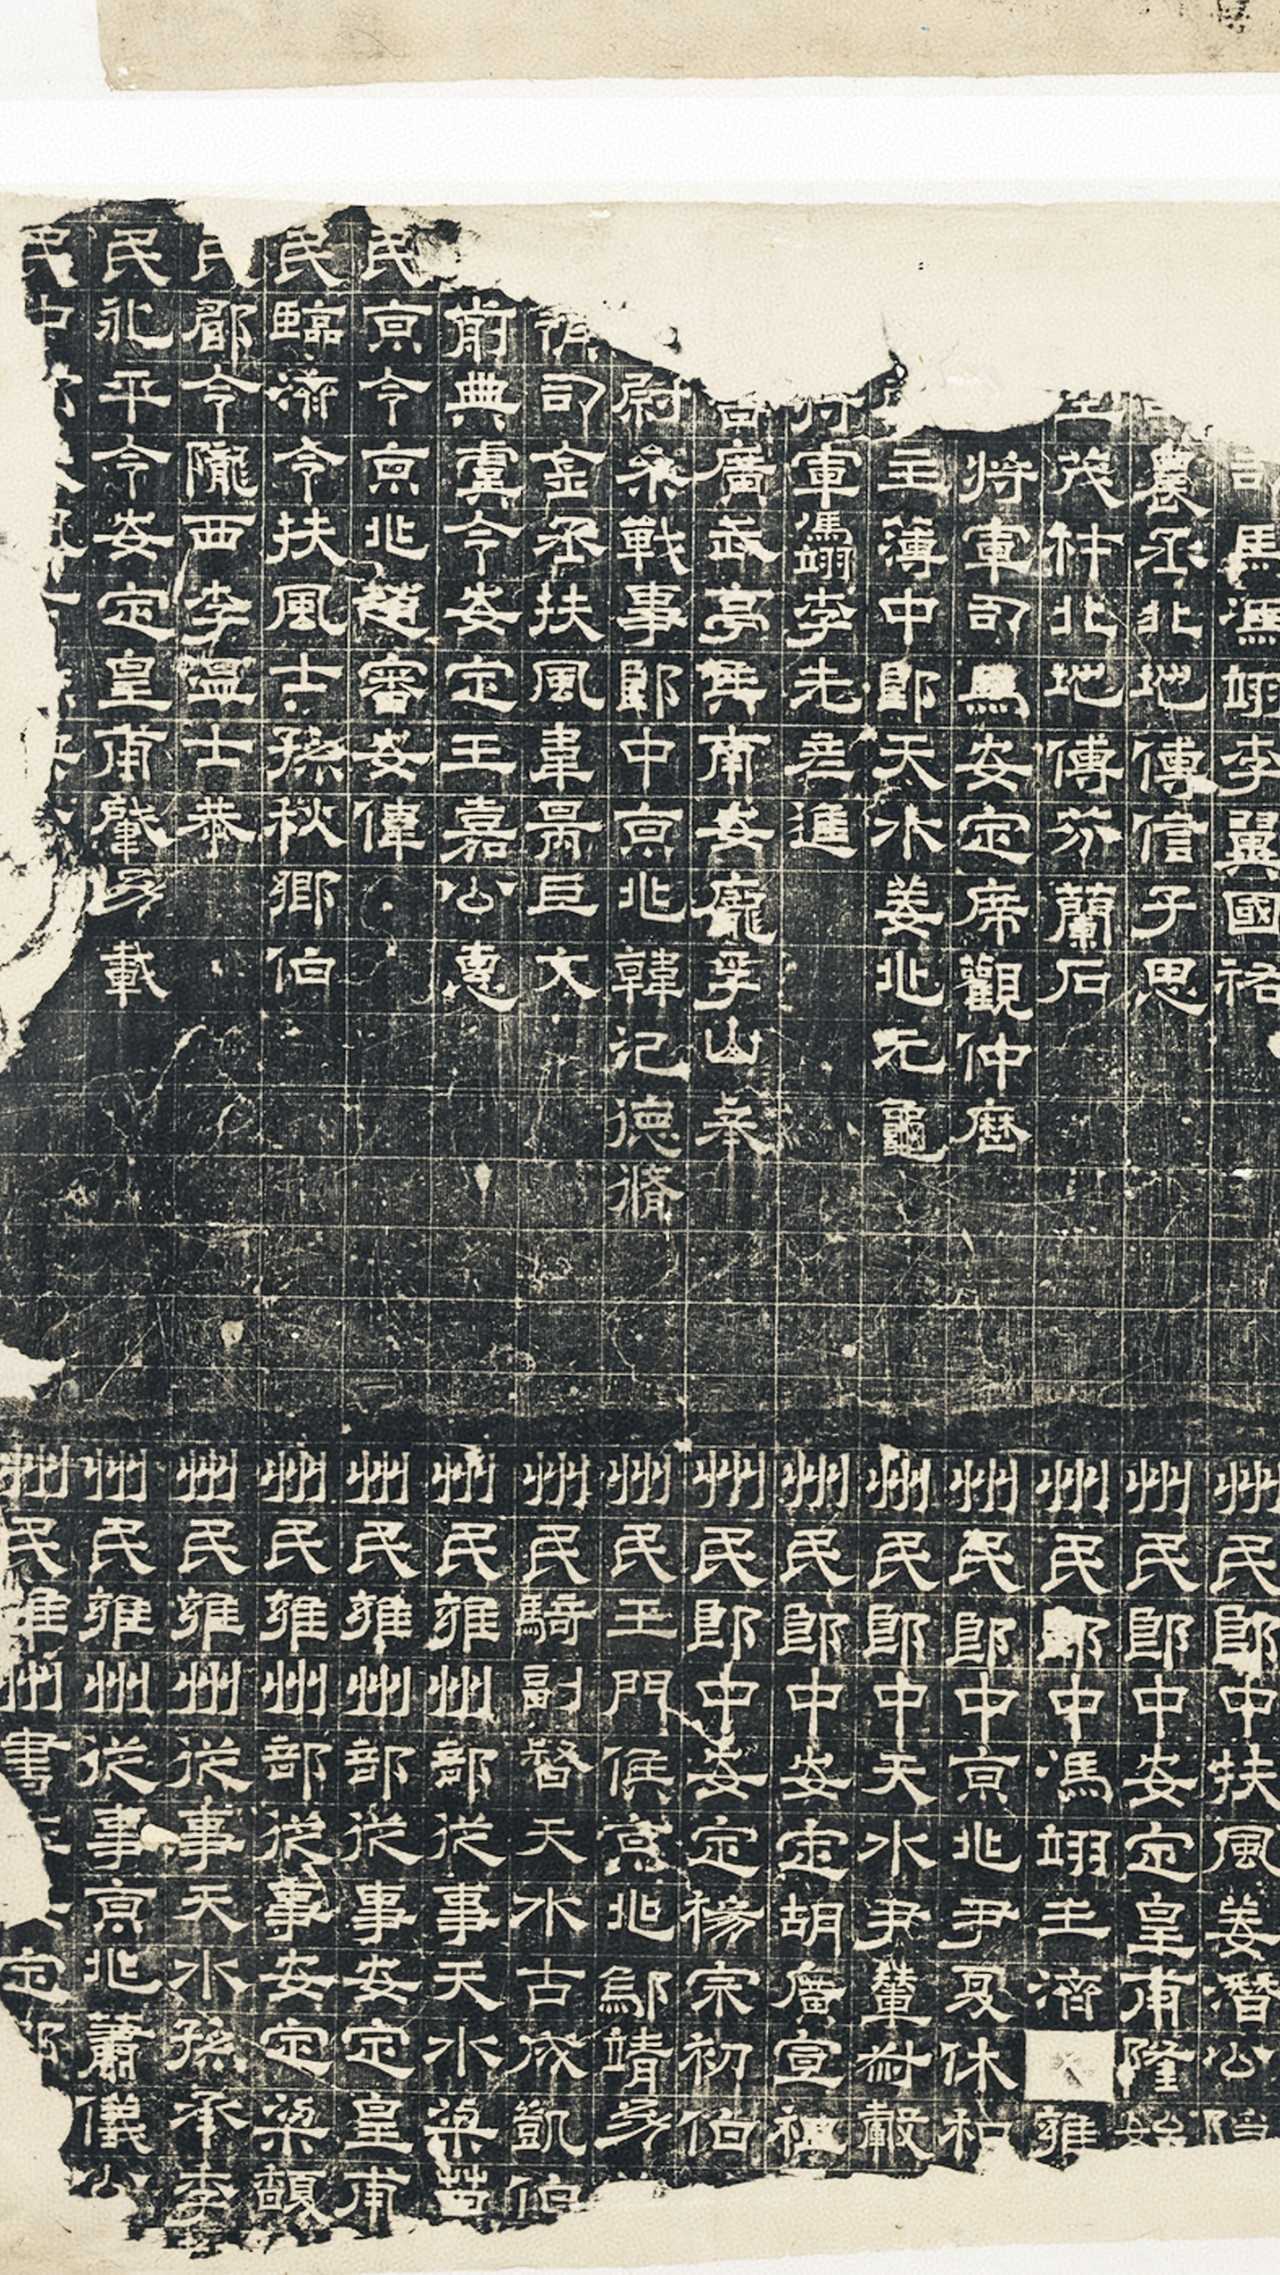 司馬馮翊李翼國祐
農丞北地傅信子思
茂材北地傅芬蘭石
將軍司馬安定席觀仲歷
主簿中郎天水姜兆元龜
將軍馮翊李先彦進
廣武亭侯南安龐孚山奉
尉參戰事郎中京兆韓氾德脩
司金丞扶風韋昺巨文
前典虞令安定王嘉公惠
民京令京兆趙審安偉
民臨濟令扶風士孫秋鄉伯
民郿令隴西李溫士恭
民永平令安定皇甫肇幼載
民中
州民郎中扶風姜潛公隱
州民郎中安定皇甫隆始
州民郎中馮翊王濟雍
州民郎中京兆尹夏休和
州民郎中天水尹輦叔轂
州民郎中安定胡廣宣祖
州民郎中安定楊宗初伯
州民玉門侯京兆鄔靖幼
州民騎副督天水古成凱伯
州民雍州部從事天水梁苗
州民雍州部從事安定皇甫
州民雍州部從事安定梁
州民雍州從事天水孫承季
州民雍州從事京兆蕭儀公
州民雍州書定